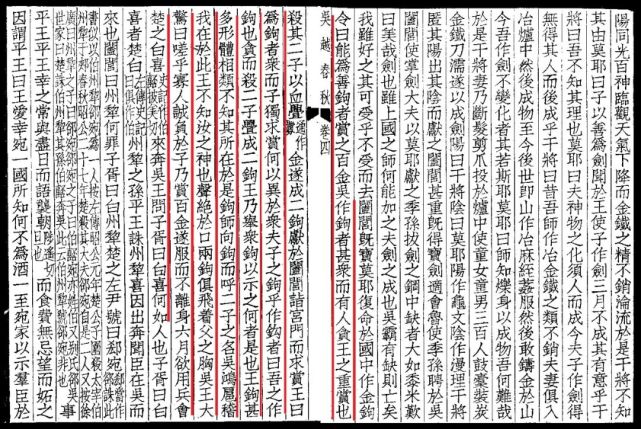 陽同光百神臨觀天氣下降而金鐵之精不銷淪流於是干將不知
其由莫耶曰子以善為劒聞於王使子作劒三月不成其有意乎干
將曰吾不知其理也莫耶曰夫神物之化須人而成今夫子作劒得
無得其人而後成乎干將曰昔吾師作冶金鐵之類不銷夫妻俱入
冶爐中然後成物至今後世即山作冶麻絰葌服然後敢鑄金於山
今吾作劒不變化者其若斯耶莫耶曰師知爍身以成物吾何難哉
於是干將妻乃斷髮剪爪投於爐中使童女童男三百人鼓橐裝炭
金鐵刀濡遂以成劒陽曰干將陰曰莫耶陽作龜文陰作漫理干將
匿其陽出其陰而獻之闔閭甚重旣得寶劒適會魯使季孫聘於吳
闔閭使掌劒大夫以莫耶獻之季孫拔劒之鍔中缺者大如黍米歎
曰美哉劒也雖上國之師何能加之夫劒之成也吳霸有缺則亡矣
我雖好之其可受乎不受而去闔閭旣寶莫耶復命於國中作金鉤
令曰能為善鉤者賞之百金吳作鉤者甚衆而有人貪王之重賞也
吳越春秋 卷四
殺其二子以血舋金遂成二鉤獻於闔閭詣宮門而求賞王曰
為鉤者衆而子獨求賞何以異於衆夫子之鉤乎作鉤者曰吾之作
鉤也貪而殺二子舋成二鉤王乃舉衆鉤以示之何者是也王鉤甚
多形體相類不知其所在於是鉤師向鉤而呼二子之名吳鴻扈稽
我在於此王不知汝之神也聲絕於口兩鉤俱飛着父之胸吳王大
驚曰嗟乎寡人誠負於子乃賞百金遂服而不離身六月欲用兵會
楚之白喜來奔吳王問子胥曰白喜何如人也子胥曰白
喜者楚白州犂之孫平王誅州犂喜因出奔聞臣在吳而
來也闔閭曰州犂何罪子胥曰白州犂楚之左尹號曰郄宛
事
平王平王幸之常與盡日而語襲朝而食費無忌望而妬之
因謂平王曰王愛幸宛一國所知何不為酒一至宛家以示羣臣於